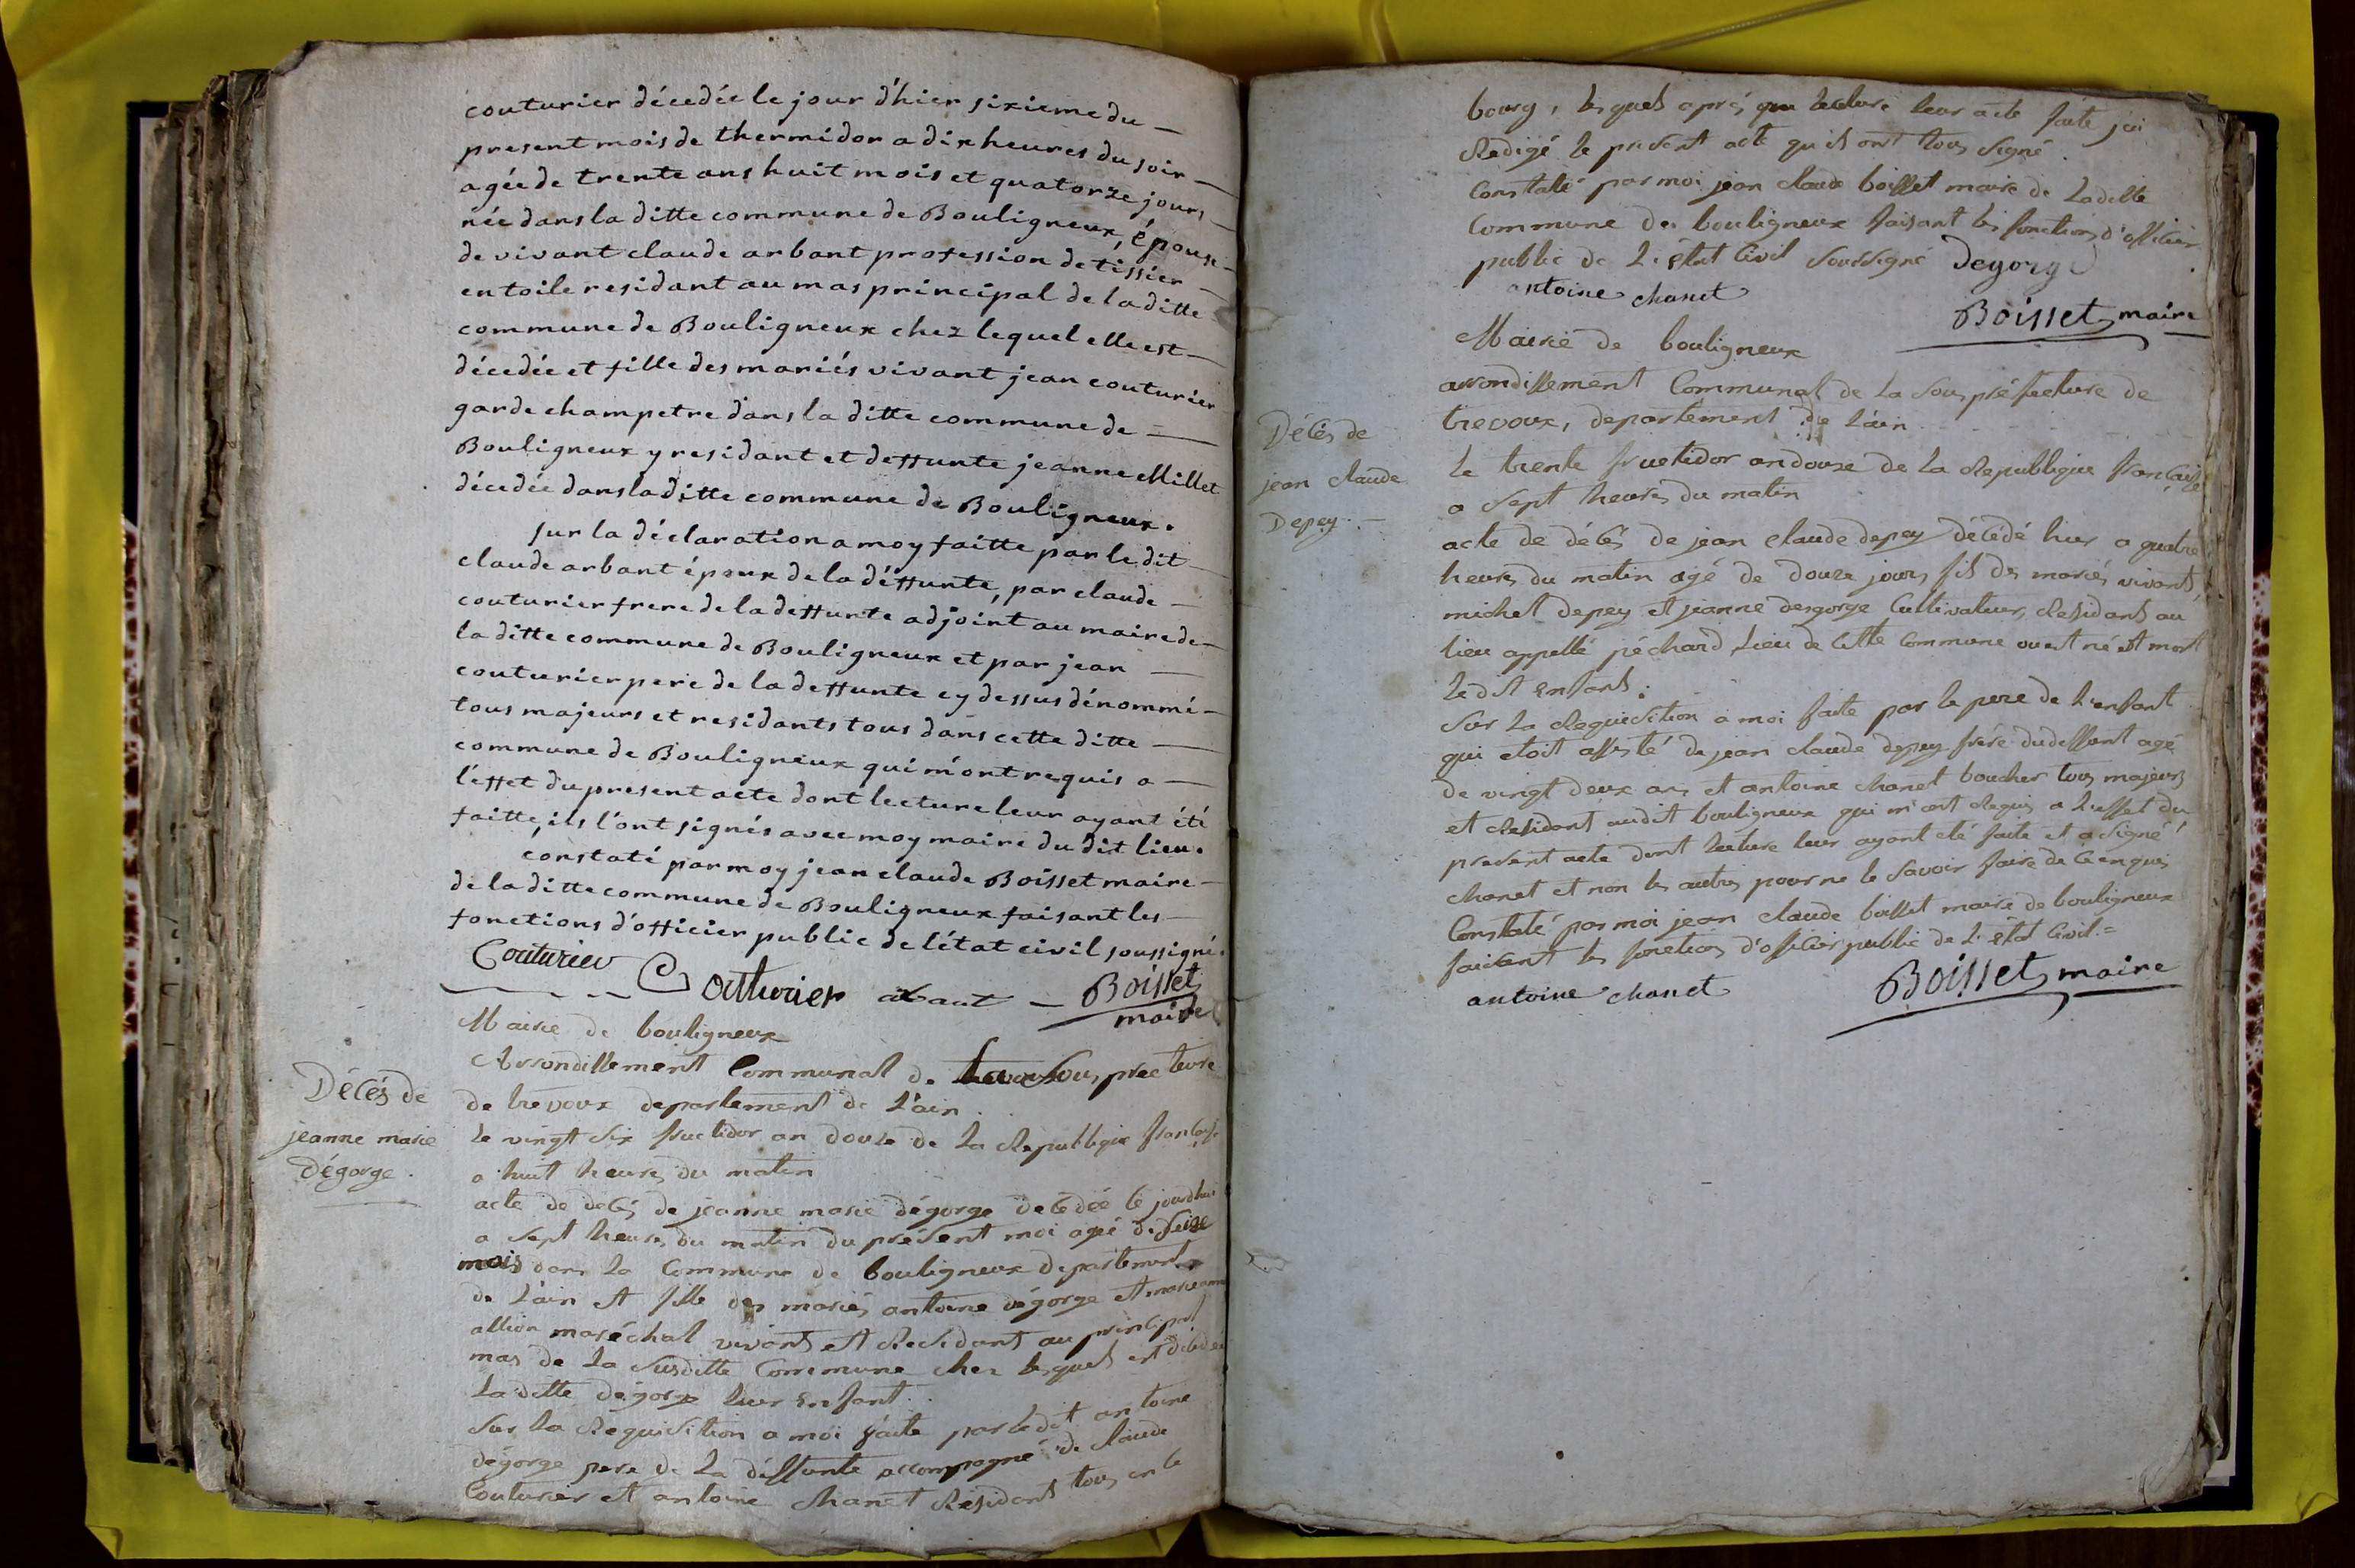 couturier décedée le jour d'hier sixieme du —
present mois de thermidor a dix heures du soir —
agée de trente ans huit mois et quatorze jours —
née dans la ditte commune de Bouligneux, épouse —
de vivant claude arbant profession de tissier —
en toile residant au mas principal de la ditte
commune de Bouligneux chez lequel elle est —
décedée et fille des mariés vivant jean couturier
garde champetre dans la ditte commune de —
Bouligneux y residant et deffunte jeanne Millet
décedée dans la ditte commune de Bouligneux.
sur la déclaration a moy faitte par le dit —
claude arbant époux de la déffunte, par claude —
couturier frere de la deffunte adjoint au maire de —
la ditte commune de Bouligneux et par jean —
couturier pere de la deffunte cy dessus dénommé —
tous majeurs et residants tous dans cette ditte —
commune de Bouligneux qui m'ont requis a —
l'effet du present acte dont lecture leur ayant été
faitte, ils l'ont signés avec moy maire du dit lieu.
constaté par moy jean claude Boisset maire —
de la ditte commune de Bouligneux faisant les —
fonctions d'officier public de l'état civil soussigné.
Couturier Couturier abant — Boisset
maire
Mairie de bouligneux
Arrondissement Communal de sous precteure
de trevoux departement de l'ain.
Décés de
jeanne marie
dégorge.
le vingt six fructidor an douze de la Republique
a huit heures du matin
acte de decés de jeanne marie dégorge decedée le jourdhui
a sept heures du matin du présent moi agée de seize
mois dans la Commune de bouligneux departement
de l'ain et fille des mariés antoine dégorge et marie anne
allion maréchal vivants et Residants au principal
mas de la susditte Commune chez lesquels est décédée
laditte dégorge leur enfant.
Sur la Requisition a moi faite par ledit antoine
dégorge pere de la déffunte accompagné de claude
Couturier et antoine chanet Résidants tous en le
bourg, lesquels aprés que lecture leur a été faite j'ai
Redigé le present acte qu'ils ont tous signé.
Constaté par moi jean claude boisset maire de ladette
Commune de bouligneux faisant les fonctions d'officier
public de l'état Civil soussigné Degorge
antoine chanet
Boisset maire
Mairie de bouligneux
arrondissement Communal de la sous préfecture de
trevoux, departement de l'ain
Décés de
jean claude
Depey. —
le trente fructidor an douze de la Republique française
a sept heures du matin
acte de décés de jean claude depey décédé hier a quatre
heures du matin agé de douze jours fils des mariés vivants,
michel depey et jeanne desgorge Cultivateurs, Residants au
lieu appellé péchard, lieu de cette Commune ou est né et mort
ledit enfant.
Sur la Requisition a moi faite par le pere de l'enfant
qui etoit assisté de jean claude depey frére du deffunt agé
de vingt deux ans et antoine chanet boucher tous majeurs
et Residant audit bouligneux qui m'ont Requis a l'effet du
present acte dont lecture leur ayant eté faite et a signé
chanet et non les autres pour ne le savoir faire de ce enquis
Constaté par moi jean claude boisset maire de bouligneux
faisant les fonctions d'officier public de l'état Civil. =
antoine chanet
Boisset maire